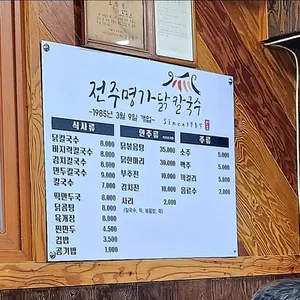 전주명가닭칼국수
-1985년 3월 9일 개업-
since1985
식사류
닭칼국수 8,000
바지락칼국수 8,000
김치칼국수 8,000
만두칼국수 9,000
칼국수 7,000
떡만두국 8,000
닭곰탕 8,000
육개장 8,000
찐만두 4,500
김밥 3,500
공기밥 1,000
안주류
닭볶음탕 35,000
닭한마리 38,000
부추전 10,000
김치전 10,000
사리 2,000
(칼국수, 떡, 볶음밥, 죽)
주류
소주 5,000
맥주 5,000
막걸리 5,000
음료수 2,000